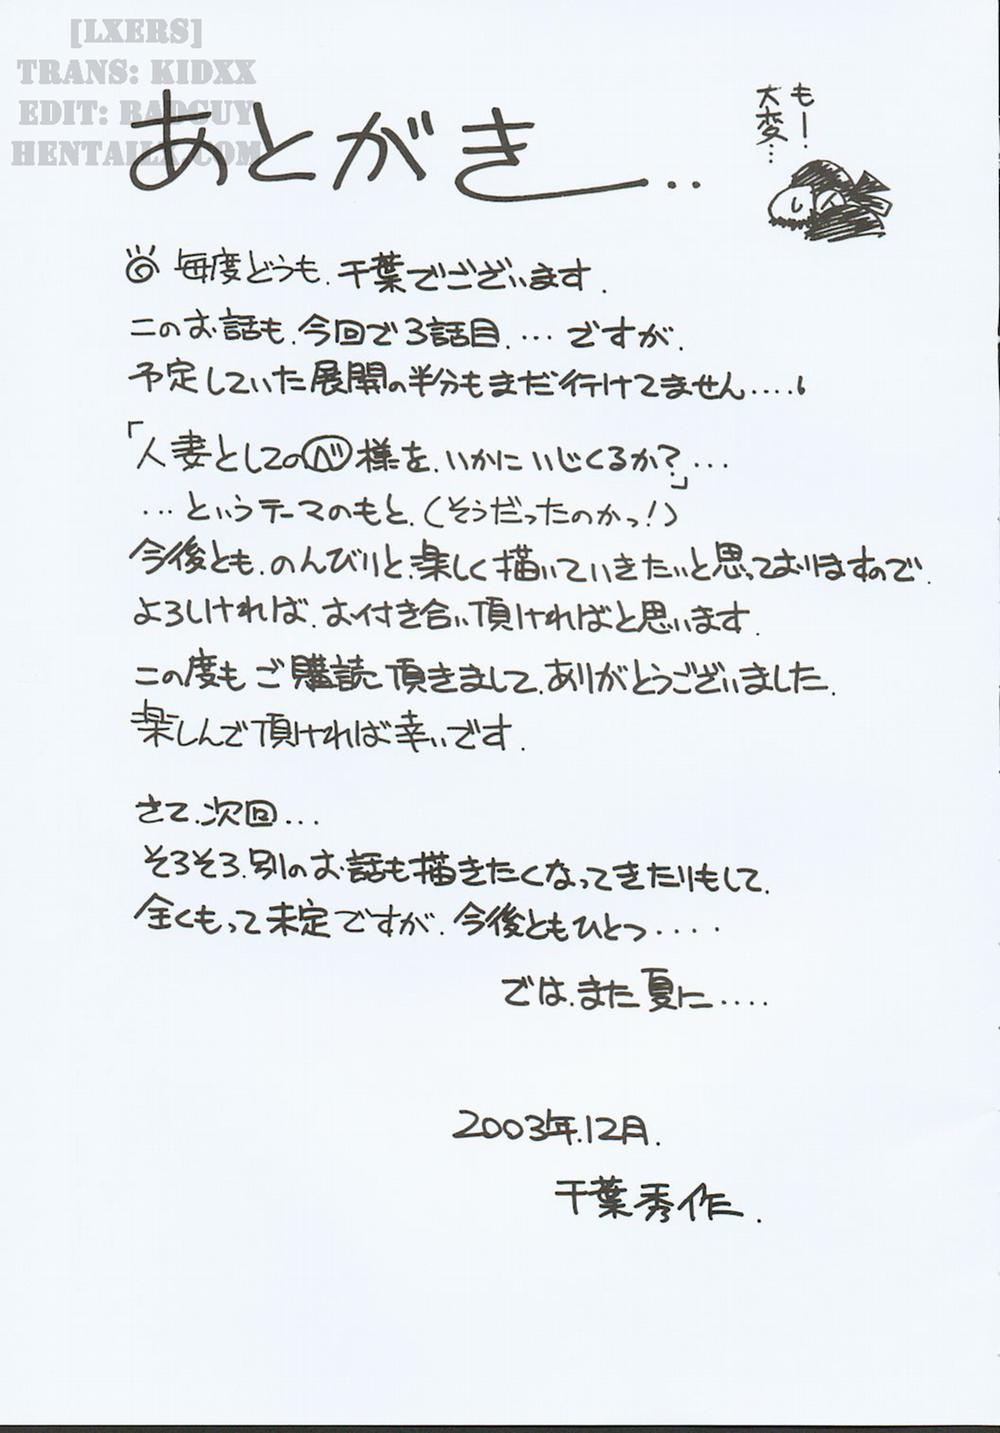 [LXERS]
TRANS: KIDXX
EDIT: BADGUY
HENTAILX.COM
あとがき...
もー
大変…
毎度どうも、千葉でございます.
このお話も、今回で3話目.…ですが、
予定していた展開の半分もまだ行けてません....
「人妻としてのベ様を、いかにいじくるか?…」
…というテーマのもと、(そうだったのかっ!)
今後とも、のんびりと、楽しく描いていきたいと思っておりますので、
よろしければ、お付き合い頂ければと思います.
この度もご購読頂きまして、ありがとうございました.
楽しんで頂ければ幸いです.
さて、次回...
そろそろ、別のお話も描きたくなってきたりもして、
全くもって未定ですが、今後ともひとつ....
では、また夏に....
2003年.12月.
千葉秀作.